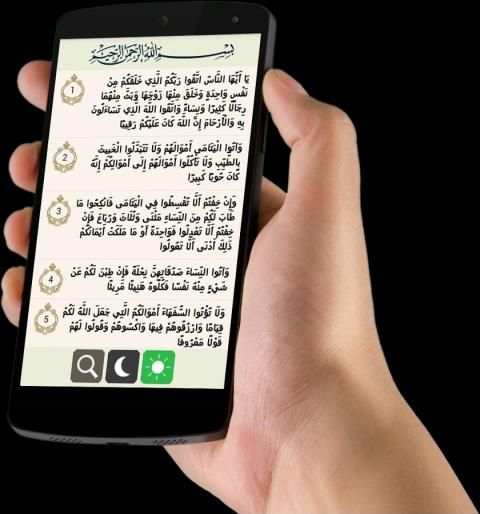 بسم الله الرحمن الرحيم
1
يَا أَيُّهَا النَّاسُ اتَّقُوا رَبَّكُمُ الَّذِي خَلَقَكُمْ مِنْ
نَفْسٍ وَاحِدَةٍ وَخَلَقَ مِنْهَا زَوْجَهَا وَبَثَّ مِنْهُمَا
رِجَالًا كَثِيرًا وَنِسَاءً وَاتَّقُوا اللَّهَ الَّذِي تَسَاءَلُونَ
بِهِ وَالْأَرْحَامَ إِنَّ اللَّهَ كَانَ عَلَيْكُمْ رَقِيبًا
2
وَآتُوا الْيَتَامَى أَمْوَالَهُمْ وَلَا تَتَبَدَّلُوا الْخَبِيثَ
بِالطَّيِّبِ وَلَا تَأْكُلُوا أَمْوَالَهُمْ إِلَى أَمْوَالِكُمْ إِنَّهُ
كَانَ حُوبًا كَبِيرًا
3
وَإِنْ خِفْتُمْ أَلَّا تُقْسِطُوا فِي الْيَتَامَى فَانْكِحُوا مَا
طَابَ لَكُمْ مِنَ النِّسَاءِ مَثْنَى وَثُلَاثَ وَرُبَاعَ فَإِنْ
خِفْتُمْ أَلَّا تَعْدِلُوا فَوَاحِدَةً أَوْ مَا مَلَكَتْ أَيْمَانُكُمْ
ذَلِكَ أَدْنَى أَلَّا تَعُولُوا
4
وَآتُوا النِّسَاءَ صَدُقَاتِهِنَّ نِحْلَةً فَإِنْ طِبْنَ لَكُمْ عَنْ
شَيْءٍ مِنْهُ نَفْسًا فَكُلُوهُ هَنِيئًا مَرِيئًا
5
وَلَا تُؤْتُوا السُّفَهَاءَ أَمْوَالَكُمُ الَّتِي جَعَلَ اللَّهُ لَكُمْ
قِيَامًا وَارْزُقُوهُمْ فِيهَا وَاكْسُوهُمْ وَقُولُوا لَهُمْ
قَوْلًا مَعْرُوفًا